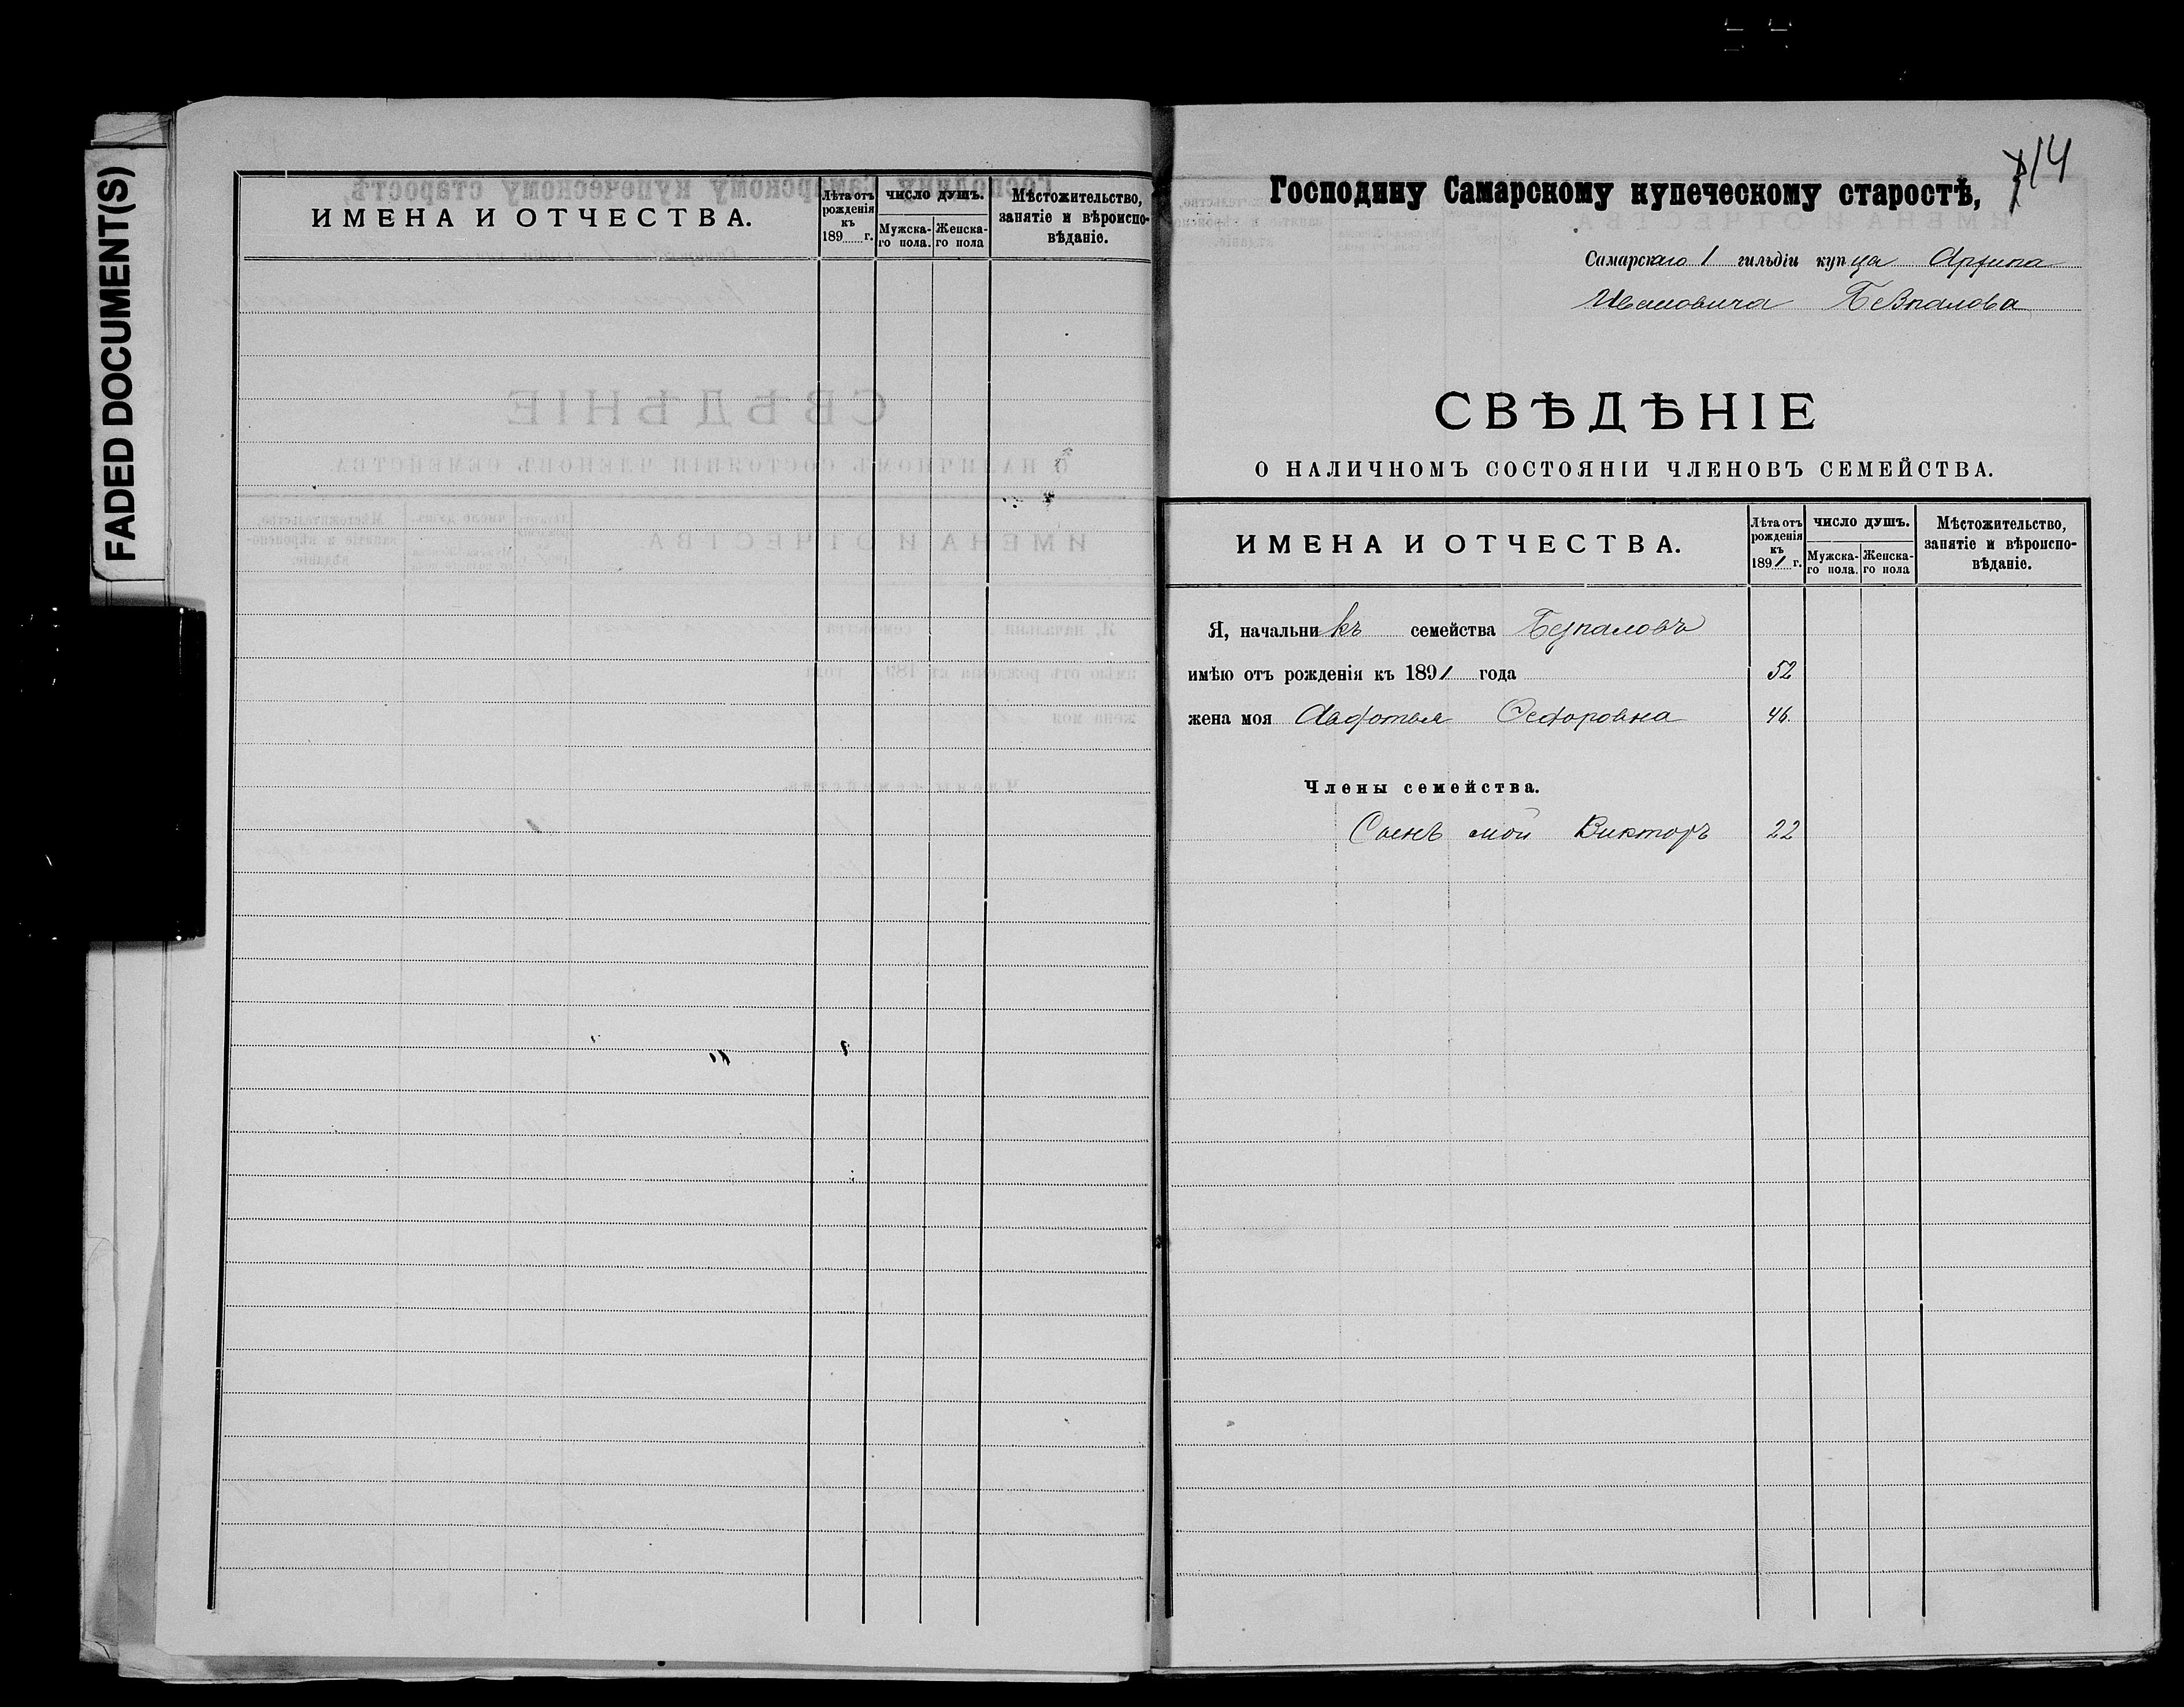 FADED DOCUMENT(S)
ИМЕНА И ОТЧЕСТВА.
Лѣта отъ рожденія къ 189 г.
ЧИСЛО ДУШЪ.
Мужска-го пола.
Женска-го пола
Мѣстожительство, занятіе и вѣроиспо-вѣданіе.
714
Господину Самарскому купеческому старостѣ,
Самарскаго 1 гильдіи купца Архипа
Ивановича Безпалова
СВѢДѢНІЕ
О НАЛИЧНОМЪ СОСТОЯНІИ ЧЛЕНОВЪ СЕМЕЙСТВА.
ИМЕНА И ОТЧЕСТВА.
Лѣта отъ рожденія къ 1891 г.
ЧИСЛО ДУШЪ.
Мужска-го пола.
Женска-го пола
Мѣстожительство, занятіе и вѣроиспо-вѣданіе.
Я, начальникъ семейства Безпаловъ
имѣю отъ рожденія къ 1891 года 52
жена моя Авдотья Федоровна 46
Члены семейства.
Сынъ мой Викторъ 22